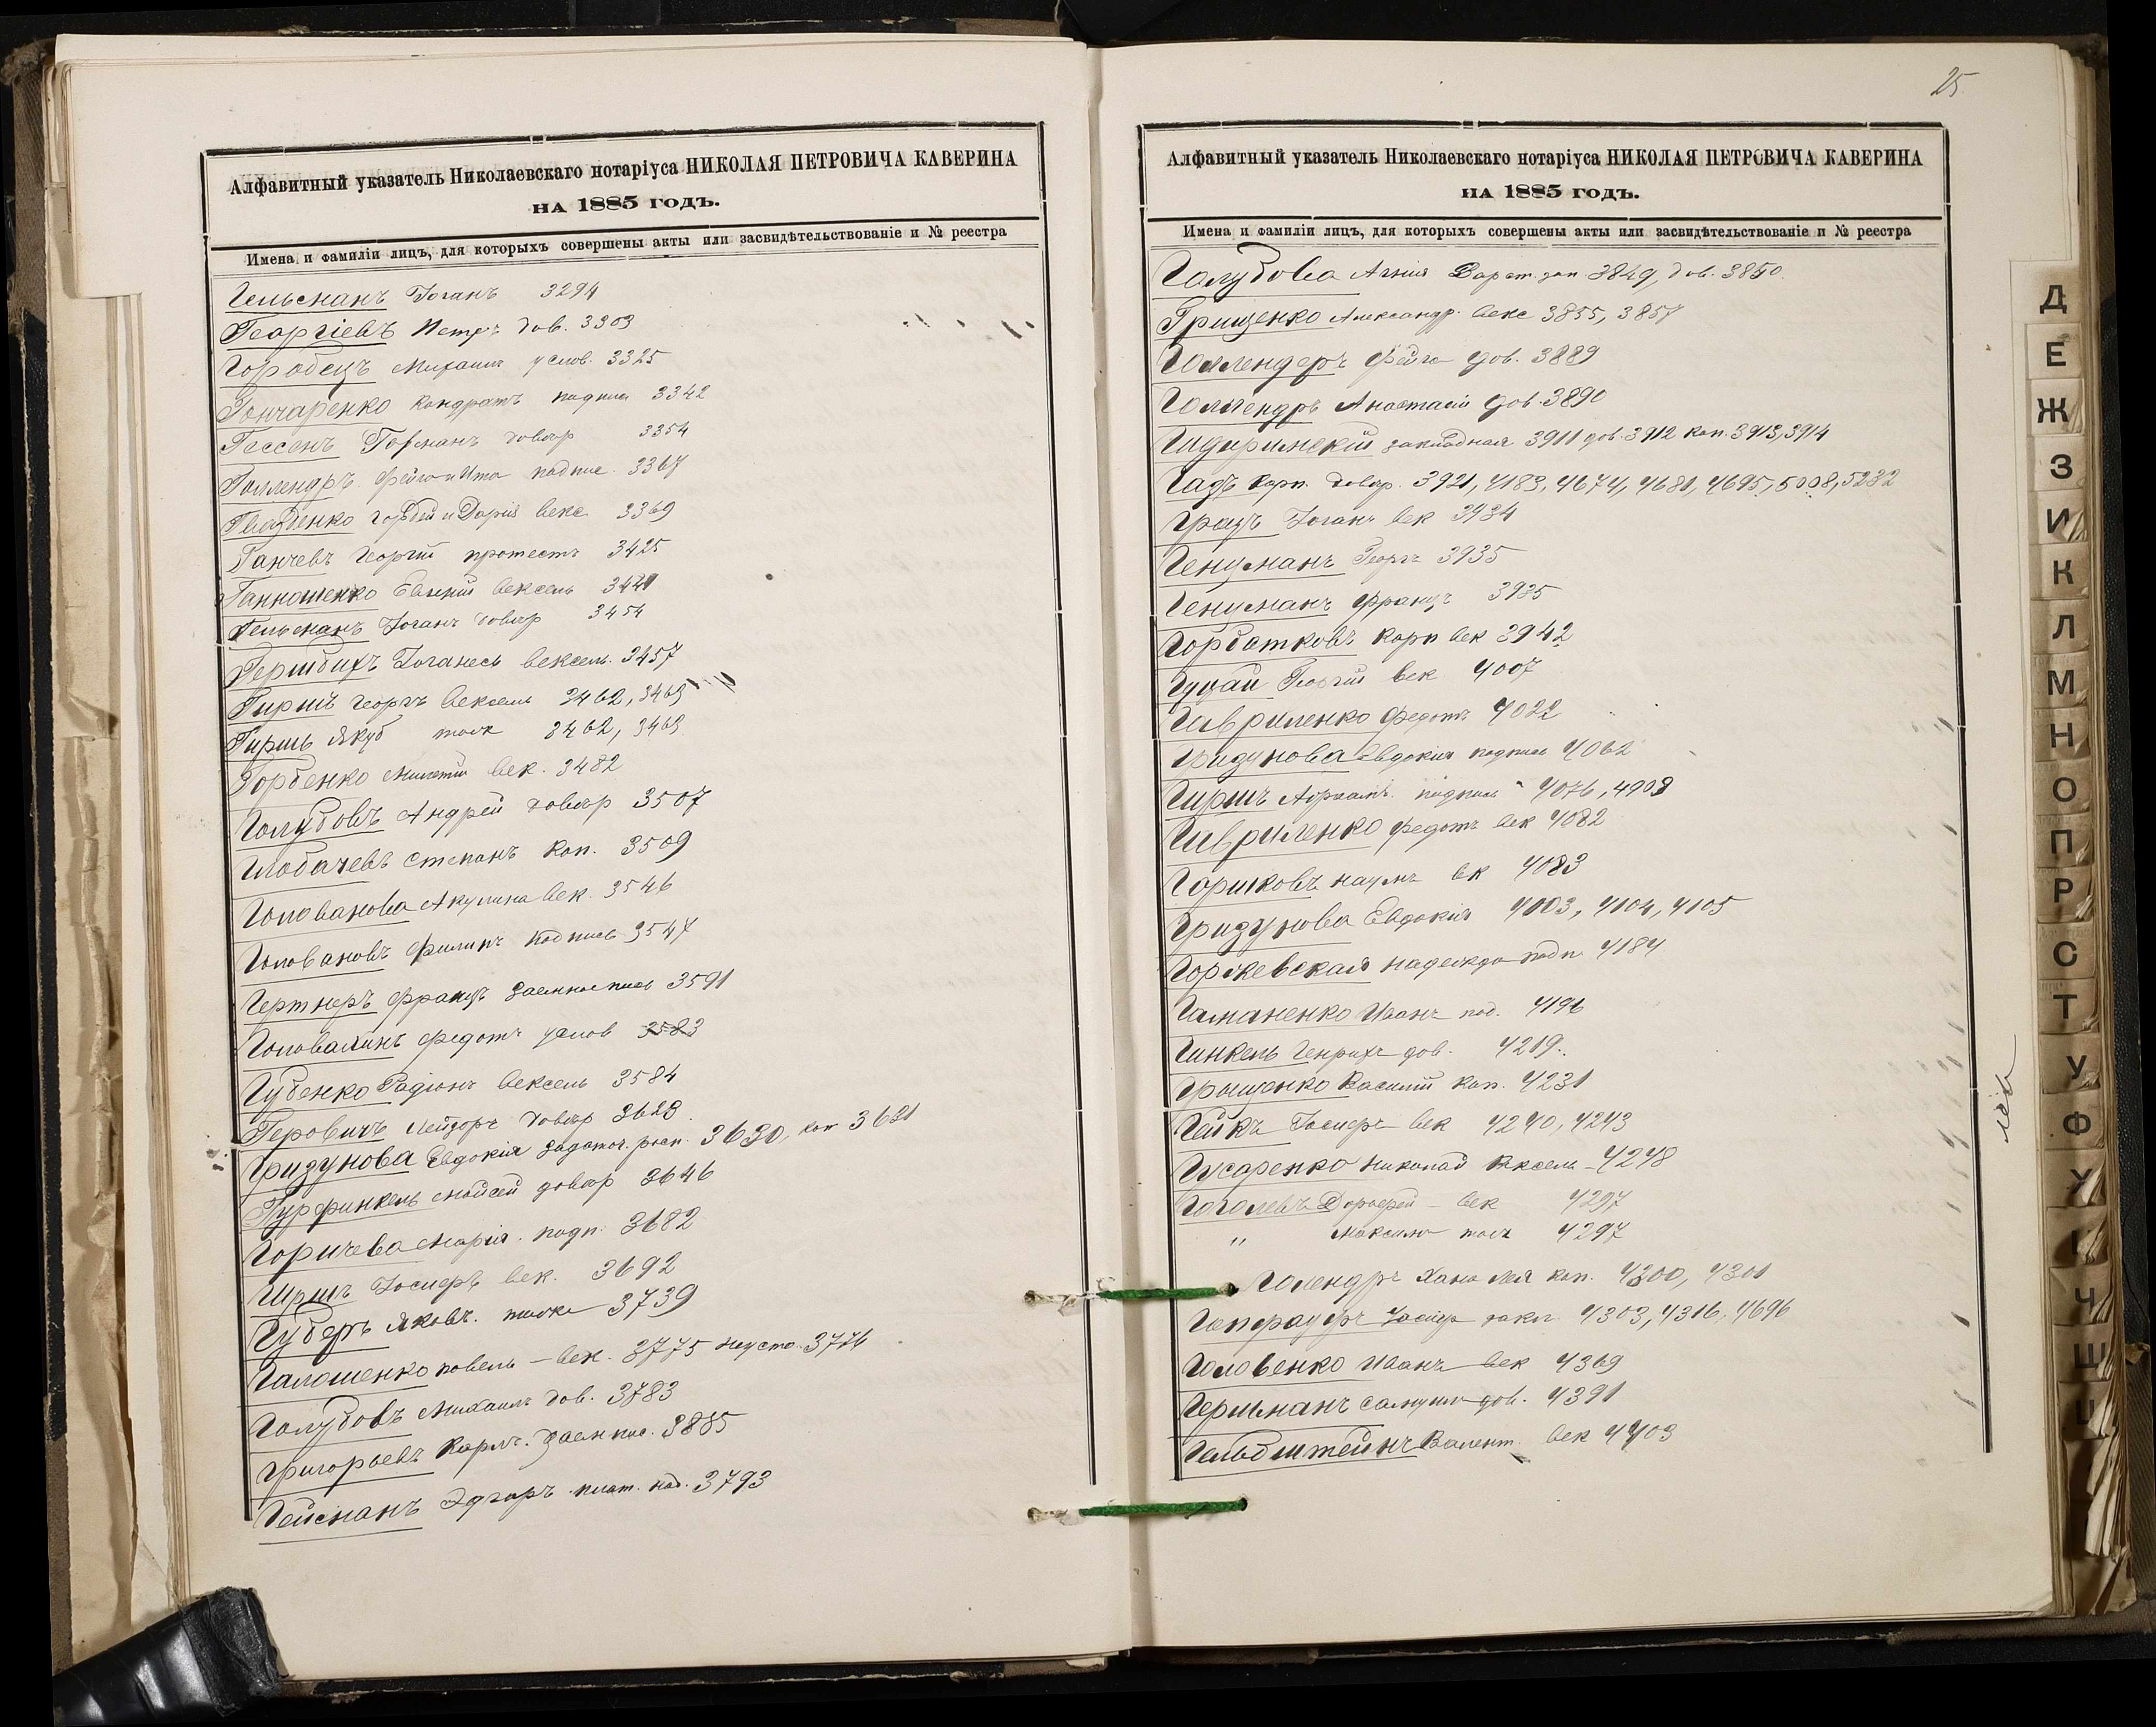 Алфавитный указатель Николаевскаго нотаріуса НИКОЛАЯ ПЕТРОВИЧА КАВЕРИНА
НА 1885 ГОДЪ.
Имена и фамиліи лицъ, для которыхъ совершены акты или засвидѣтельствованіе и № реестра
Гельсманъ Іоганъ 3294
Георгіевъ Петръ дов. 3303
Городецъ Михаилъ услов. 3325
Гончаренко Кондратъ подпись 3342
Гессенъ Гофманъ довѣр 3354
Голлендръ Фейга и Ита подпис. 3367
Гордѣй и Дарія векс. 3369
Ганчевъ Георгій протестъ 3425
Ганношенко вексель
Гельсманъ Іоганъ довѣр 3454
Гершбихъ Іоганесъ вексель. 3457
Гиршъ Георгъ вексель 3462, 3463
Гиршъ Якубъ тоже 3462, 3463
Горбенко век. 3482
Голубовъ Андрей довѣр 3507
Глобачевъ Степанъ коп. 3509
Голованова Акулина век. 3546
Головановъ Филипъ подпись 3547
Гертнеръ Францъ 3591
Федотъ услов 3583
Губенко Радіонъ вексель 3584
Геровичъ Лейзоръ довѣр 3623
Гризунова Евдокія задаточ. росп. 3630, коп 3631
Гурфинкель Мойсей довѣр 3646
Горичева Марія. подп. 3682
Гиршъ Іосифъ век. 3692
Губеръ Яковъ. тоже 3739
Галошенко Павелъ – век. 3775 неуст. 3776
Голубовъ Михаилъ дов. 3783
Григорьевъ Карлъ. 3885
Гейсманъ Эдгаръ 3793
25
Алфавитный указатель Николаевскаго нотаріуса НИКОЛАЯ ПЕТРОВИЧА КАВЕРИНА
НА 1885 ГОДЪ.
Имена и фамиліи лицъ, для которыхъ совершены акты или засвидѣтельствованіе и № реестра
Голубова 3849, дов. 3850
Грищенко Александръ векс 3855, 3857
Голлендеръ Фейга дов. 3889
Голлендръ Анастасій дов. 3890
закладная 3911 дов. 3912 коп. 3913, 3914
Гадъ Карп довѣр. 3921, 4183, 4674, 4681, 4695, 5008, 5232
Грацъ Іоганъ век 3934
Генцманъ Георгъ 3935
Генцманъ Францъ 3935
Горбатковъ Карп век 3942
Георгій век 4007
Гавриленко Федотъ 4022
Гризунова Евдокія подпись 4062
Гиршъ Абрамъ подпись 4076, 4908
Гавриленко Федотъ век 4082
Горшковъ Наумъ вк 4083
Гризунова Евдокія 4103, 4104, 4105
Горжевская Надежда подп 4184
Гаманенко Иванъ под. 4196
Гинкель Генрихъ дов. 4219
Грыщенко Василій коп. 4231
Гейкъ век 4240, 4243
Гусаренко Николай вексель – 4248
Гоголевъ Дорофей – век 4297
" Максимъ тоже 4297
Голендръ Хана Лея коп. 4300, 4301
закл. 4303, 4316, 4696
Головенко Иванъ век 4369
Гершманъ Самуилъ дов. 4391
Гольдштейнъ Валент. век 4403
Д
Е
Ж
З
И
К
Л
М
Н
О
П
Р
С
Т
У
Ф
Ч
Ш